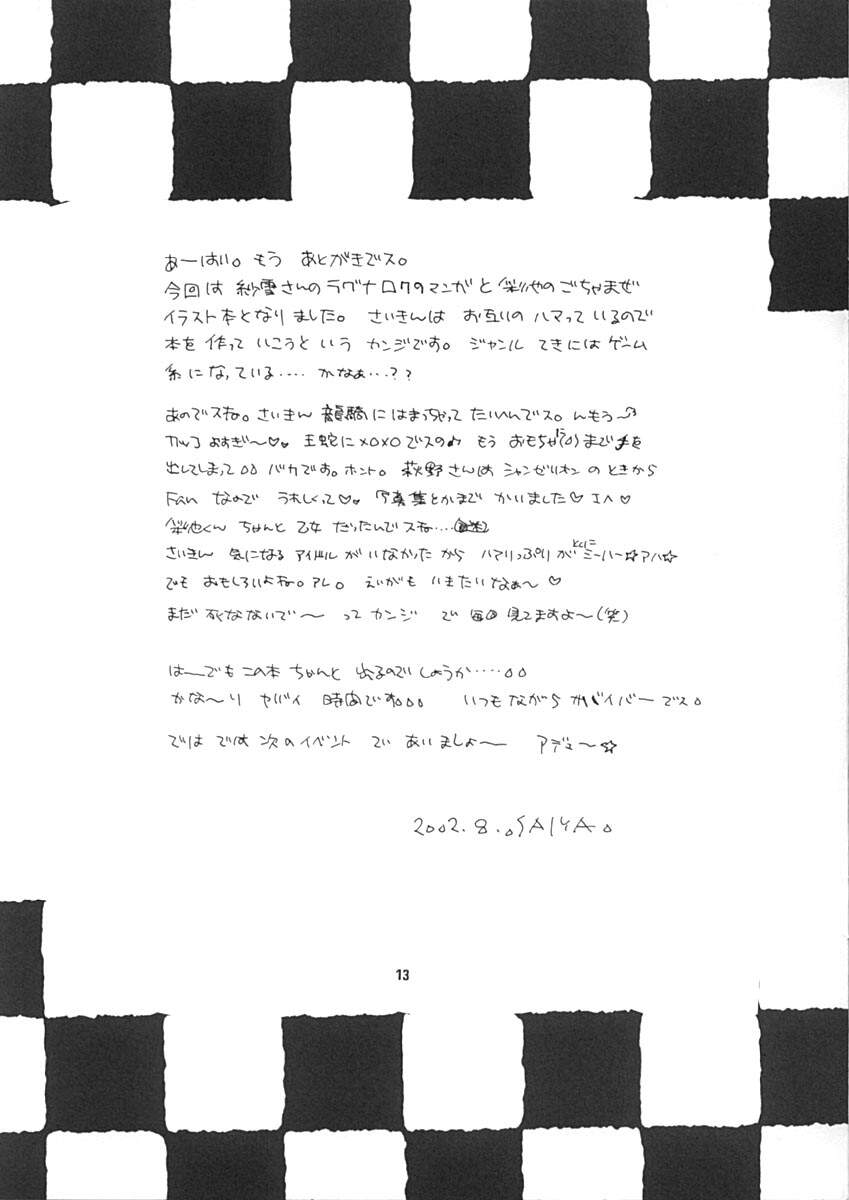 あーはい。もう あとがきでス。
今回は 紗雪さんのラグナロクのマンガと 彩やのごちゃまぜ
イラスト本となりました。さいきんは お互いの ハマっているので
本を作っていこうという カンジです。ジャンル てきにはゲーム
系になっている‥‥ かなぁ…??
あのでスね。さいきん 龍騎にはまっちゃって たいへんでス。んもう〜
カッコよすぎ〜♡ 王蛇にメロメロでスの♪ もう おもちゃ まで を
出してしまって バカです。ホント。萩野さんは シャンゼリオン のときから
Fan なので うれしくって♡ 写真集とかまで かいました♡ エヘ♡
くん ちゃんと 乙女 だったんでスね‥‥
さいきん 気になる アイドル がいなかったから ハマりっぷりが とくに ミーハー☆アハ☆
でも おもしろいよね。アレ。えいがも いきたいなぁ〜♡
まだ 死なないで〜 って カンジ で 毎回 見てますよ〜(笑)
はーでも この本 ちゃんと 出るのでしょうか‥‥
かな〜り ヤバイ 時間です。 いつもながら バイバーでス。
では では 次のイベント で あいましょ〜 アデュ〜☆
2002.8. SAIYA
13